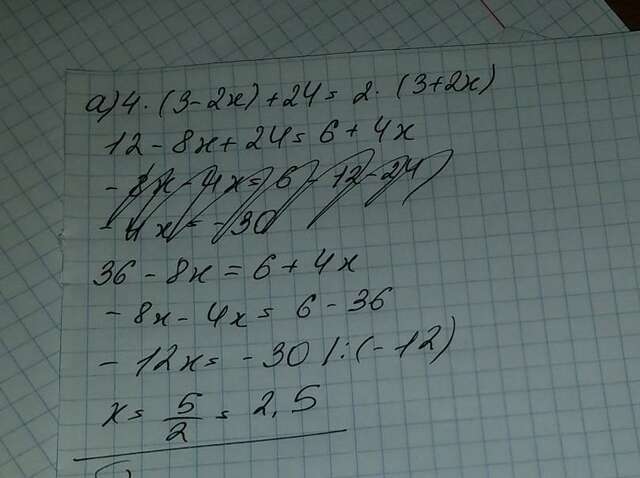 а) 4 · (3 - 2x) + 24 = 2 · (3 + 2x)
12 - 8x + 24 = 6 + 4x
- 8x - 4x = 6 - 12 - 24
- 4x = - 30
36 - 8x = 6 + 4x
- 8x - 4x = 6 - 36
- 12x = - 30 | : (- 12)
x = 5/2 = 2,5